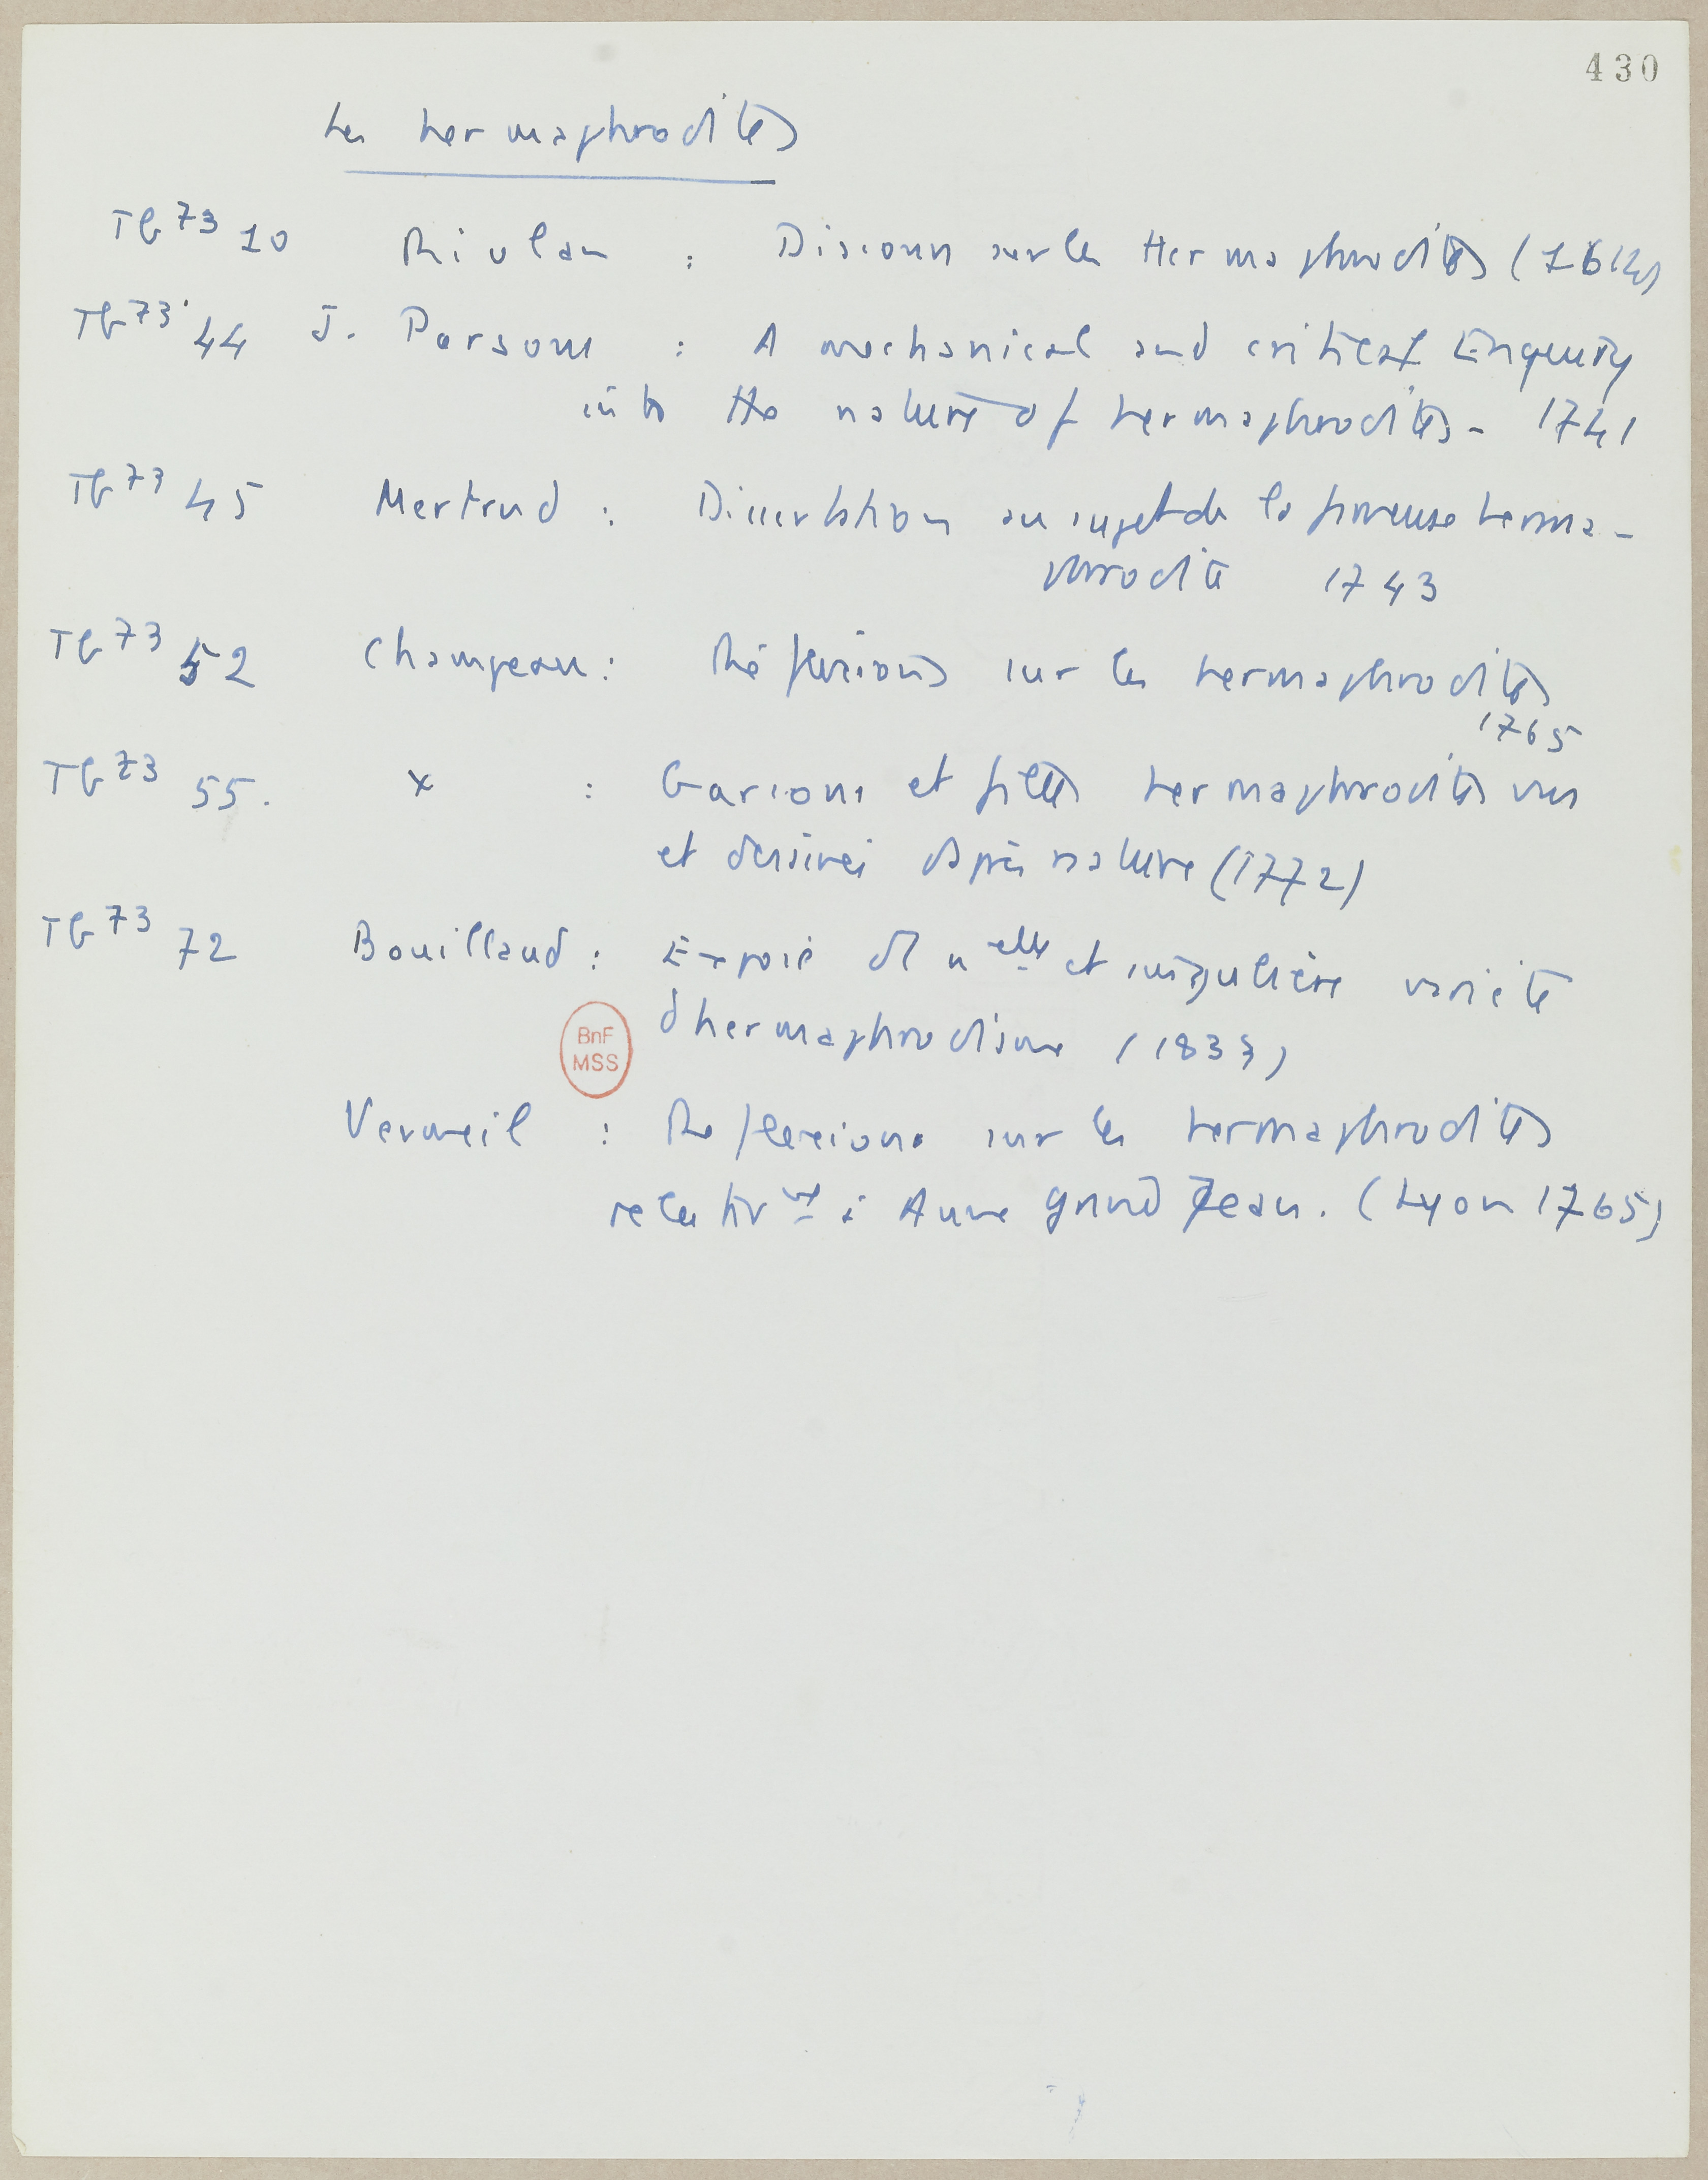 430
Les hermaphrodites
Tb 73 10 Riolan : Discours sur les Hermaphrodites (1614)
Tb 73 44 J. Parsons : A mechanical and critical Enquiry
into the nature of hermaphrodites - 1741
Tb 73 45 Mertrud : Dissertation au sujet de la fameuse herma-
phrodite 1743
Tb 73 52 Champeau : Réflexions sur les hermaphrodites
1765
Tb 73 55. x : Garçons et filles hermaphrodites vus
et dessinés d'après nature (1772)
Tb 73 72 Bouillaud : Exposé d'1 nelle et singulière variété
d'hermaphrodisme (1833)
BnF
MSS
Vermeil : Réflexions sur les hermaphrodites
relativt à Anne Grand Jean. (Lyon 1765)